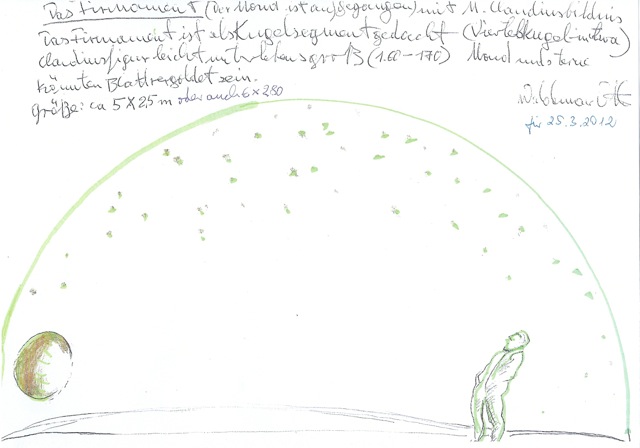 Das Firmament (Der Mond ist aufgegangen) mit M. Claudiusbildnis
Das Firmament ist als Kugelsegment gedacht (Viertelkugel in etwa)
Claudiusfigur leicht unter lebensgroß (1.60 – 170) Mond und Sterne
könnten Blattvergoldet sein.
Größe: ca 5 X 2,5 m oder auch 6 x 2,80
für 25.3.2012